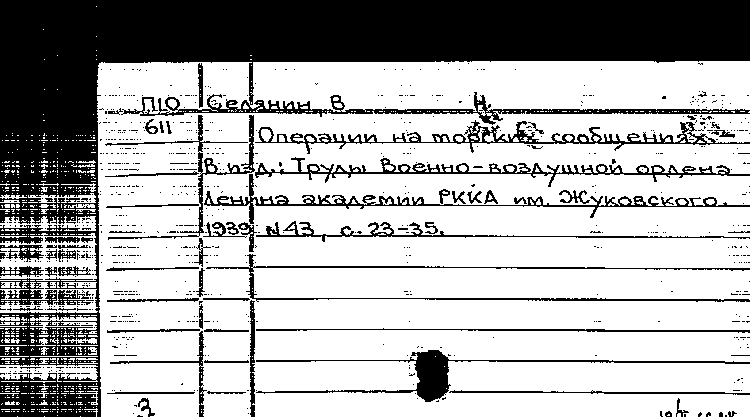 П10 Селянин, В Н.
611 Операции на морских сообщениях.
В изд.: Труды Военно-воздушной ордена
Ленина академии РККА им. Жуковского.
1939 N43, с. 23-35.
3